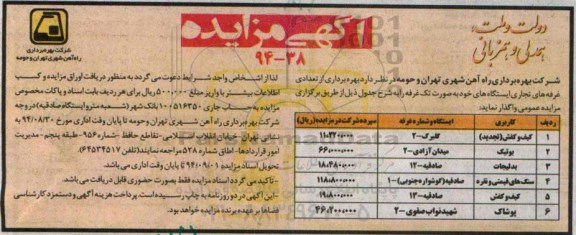 دولت و ملت،
همدلی و همزبانی
آگهی مزایده
۹۴-۳۸
شرکت بهره برداری
راه آهن شهری تهران و حومه
شرکت بهره برداری راه آهن شهری تهران و حومه در نظر دارد بهره برداری از تعدادی
غرفه های تجاری ایستگاه های خود به صورت تک غرفه را به شرح جدول ذیل از طریق برگزاری
مزایده عمومی واگذار نماید:
ردیف کاربری ایستگاه و شماره غرفه سپرده شرکت در مزایده (ریال)
۱ کیف و کفش (تجدید) گلبرگ-۲
۲ بوتیک میدان آزادی-۲
۳ بدلیجات صادقیه-۱۲
۴ سنگ های قیمتی و نقره صادقیه (گوشواره جنوبی)-۱
۵ کیف و کفش صادقیه-۱۳
۶ پوشاک شهید نواب صفوی-۲
لذا از اشخاص واجد شرایط دعوت می گردد به منظور دریافت اوراق مزایده و کسب
اطلاعات بیشتر با واریز مبلغ ۵۰۰،۰۰۰ ریال برای هر ردیف بابت اسناد و پاکات مخصوص
مزایده به حساب جاری ۱۰۰۵۱۶۳۵۰ بانک شهر (شعبه مترو ایستگاه صادقیه) در وجه
شرکت بهره برداری راه آهن شهری تهران و حومه تا پایان وقت اداری مورخ ۹۴/۰۸/۳۰ به
نشانی تهران - خیابان انقلاب اسلامی - تقاطع حافظ - شماره ۹۵۶ - طبقه پنجم - مدیریت
امور قراردادها - اطاق شماره ۵۲۸ مراجعه نمایند (تلفن: ۶۴۵۳۴۵۱۷)
تحویل اسناد مزایده ۹۴/۰۹/۰۱ تا پایان وقت اداری می باشد.
- تاکید می گردد اسناد مزایده فقط بصورت حضوری قابل دریافت می باشد.
- این آگهی در دو روزنامه به چاپ رسیده است. پرداخت هزینه آگهی و دستمزد کارشناسی
فضاها بر عهده برنده مزایده خواهد بود.